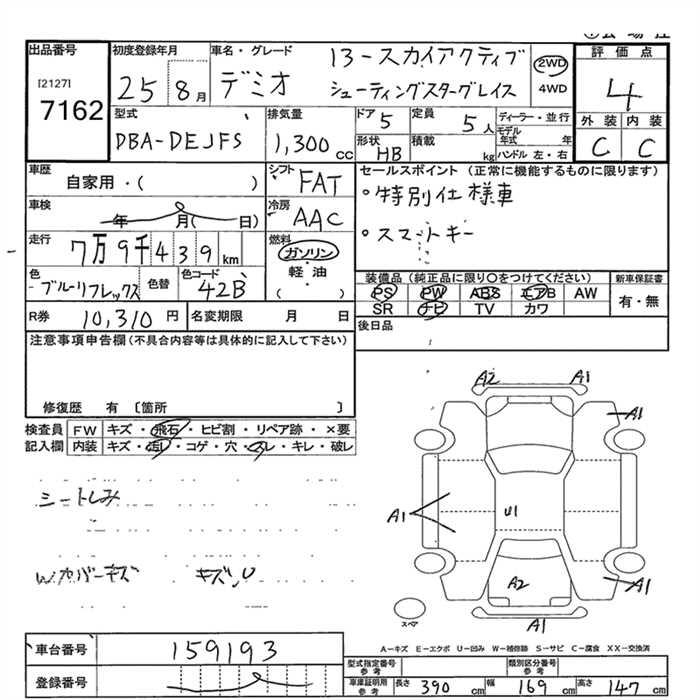 出品番号
[2127]
7162
初度登録年月
25 8月
車名・グレード
デミオ
13-スカイアクティブ
シューティングスターグレイス
2WD
4WD
評価点
4
外装 内装
C C
型式
DBA-DEJFS
排気量
1,300 cc
ドア 5
定員 5人
形状 HB
積載 kg
ディーラー・並行
モデル年式 年
ハンドル 左・右
車歴
自家用・( )
シフト FAT
車検
年 月( 日)
冷房 AAC
走行
7万9千439km
燃料
ガソリン
軽油
( )
色
ブルーリフレックス
色替
色コード
42B
R券 10,310円
名変期限 月 日
セールスポイント (正常に機能するものに限ります)
・特別仕様車
・スマートキー
装備品(純正品に限り○をつけてください)
新車保証書
PS PW ABS エアB AW
SR ナビ TV カワ
有・無
後日品
注意事項申告欄(不具合内容等は具体的に記入して下さい)
修復歴 有 〔箇所 〕
検査員記入欄
FW キズ・飛石・ヒビ割・リペア跡・×要
内装 キズ・汚レ・コゲ・穴・スレ・キレ・破レ
シートしみ
W.カバーキズ キズ、U
A2 A1
A1
A1
U1
A2
A1
A1
スペア
A-キズ E-エクボ U-凹み W-補修跡 S-サビ C-腐食 XX-交換済
車台番号 159193
登録番号
型式指定番号 参考
類別区分番号 参考
車庫証明用 参考
長さ 390 cm
幅 169 cm
高さ 147 cm